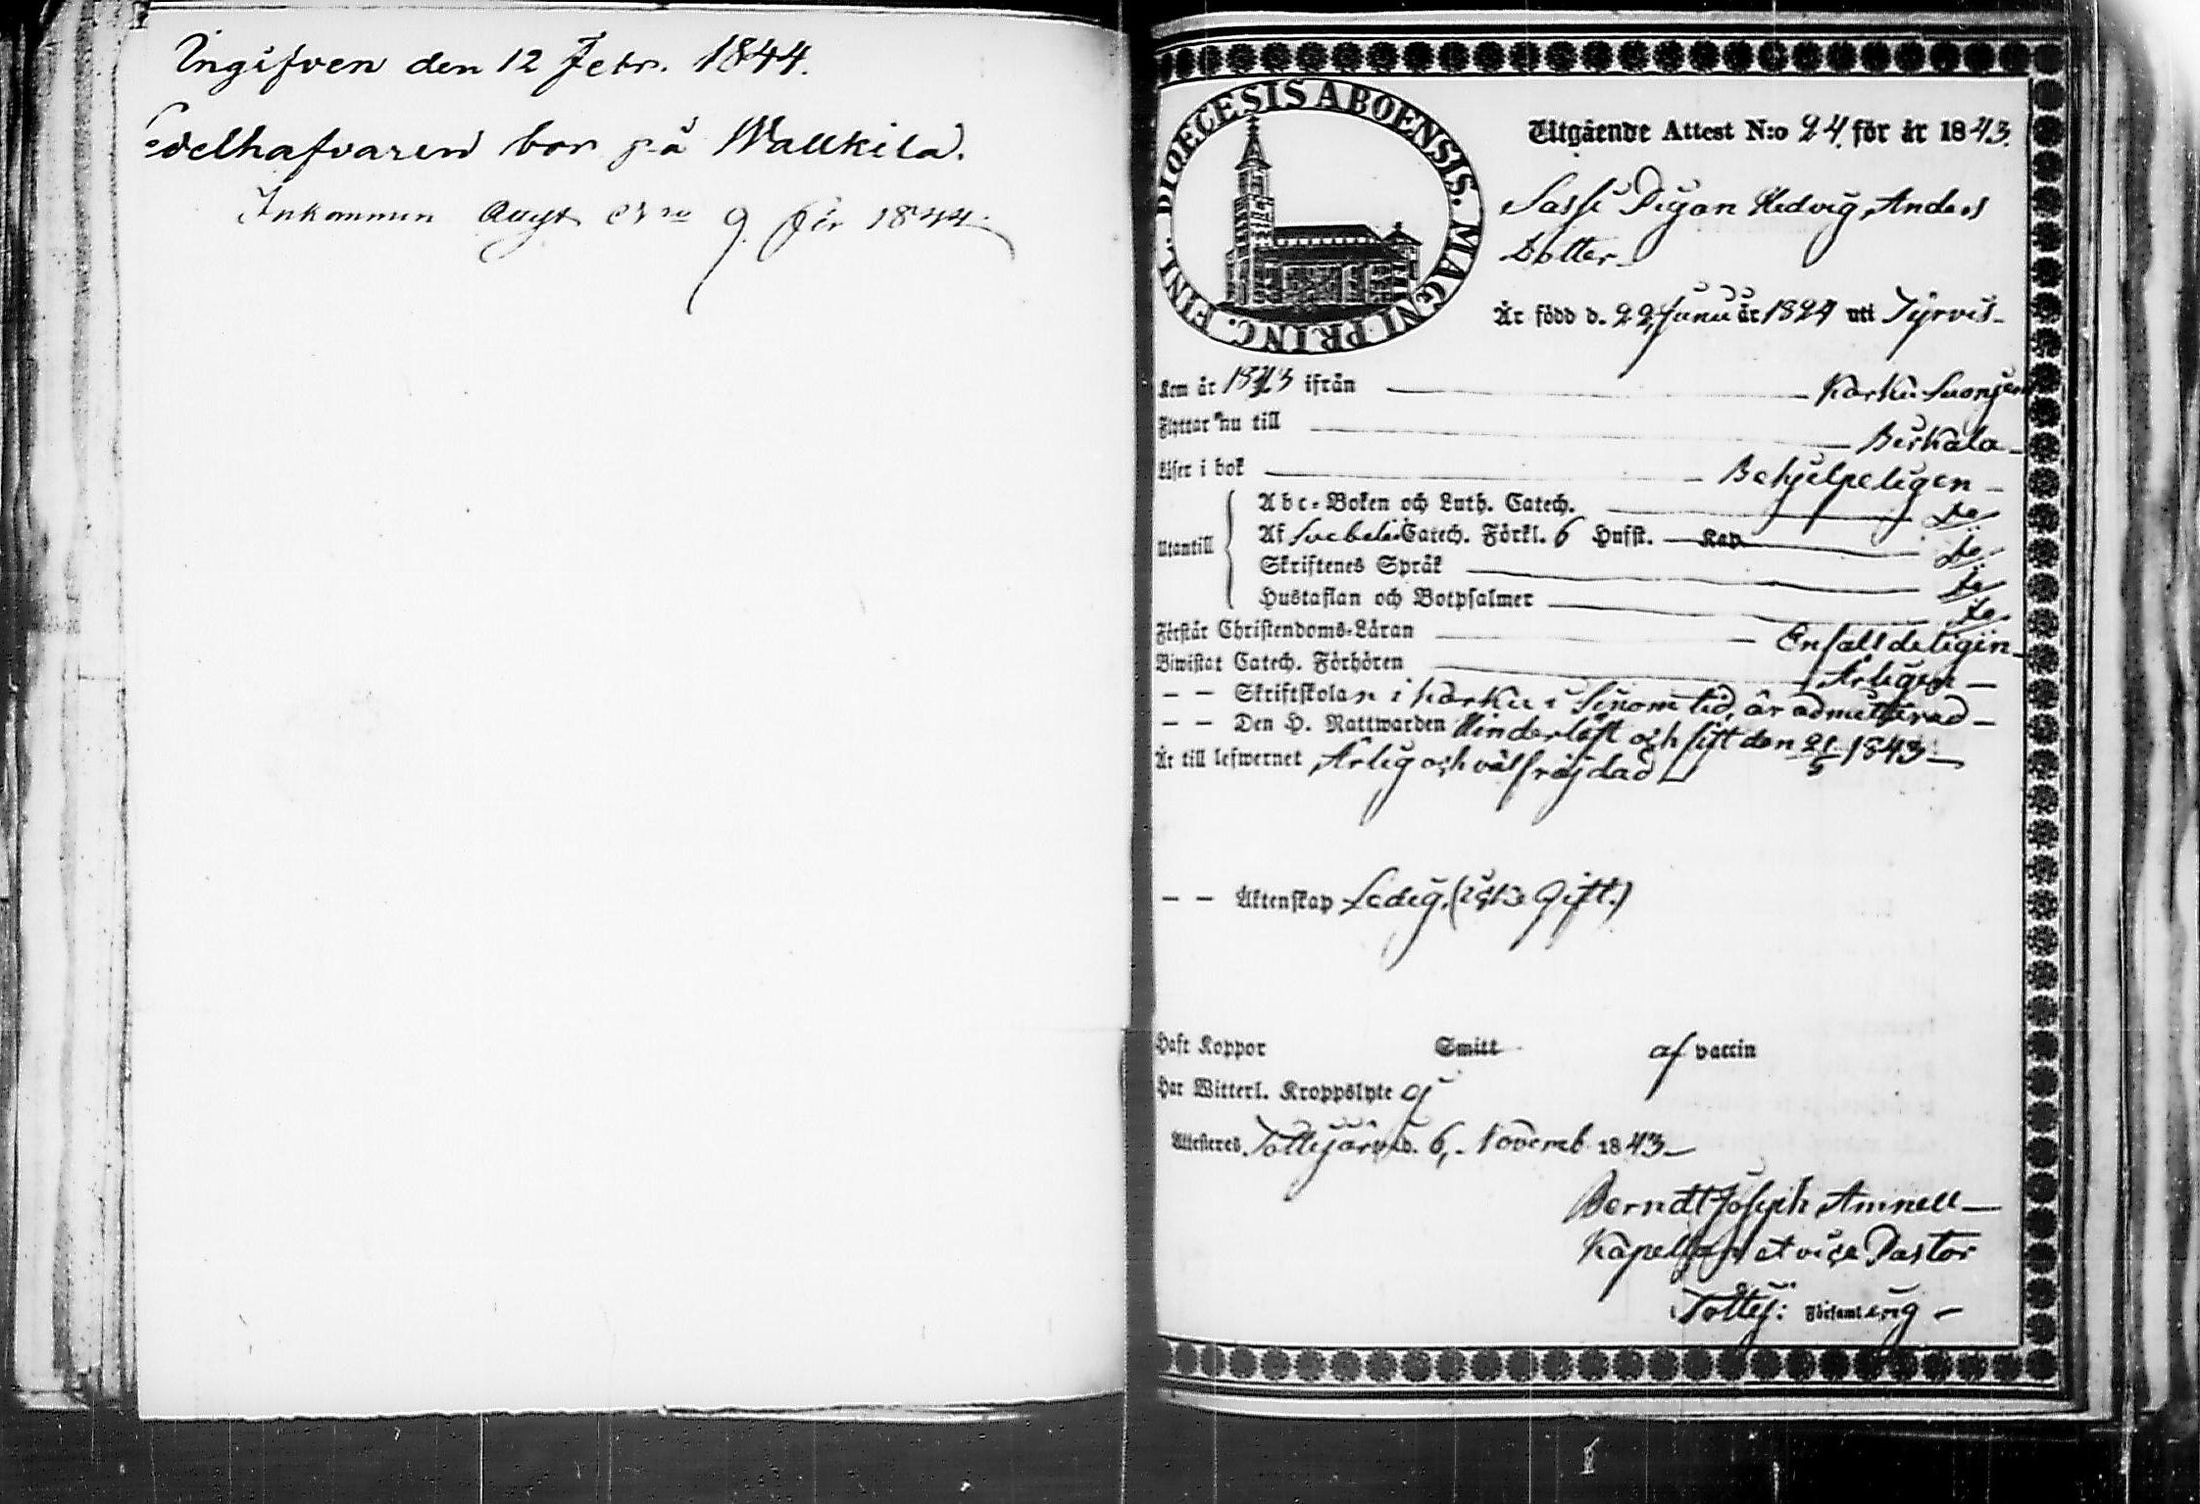 Ingifven den 12 Febr. 1844.
Sedelhafvaren bor på Wallkila.
Inkommen Attest No 9 för 1844.
DIOECESIS ABOENSIS. MAGNI PRINC. FINL.
Utgående Attest N:o 24 för år 1843.
Pigan Hedvig Anders
Dotter
Är född d. 22 Junii år 1824 uti Tyrvis
Kom år 1843 ifrån Karku
Flyttar nu till Birkala
Läser i bok Behjelpeligen
Abc-Boken och Luth. Catech. do
Utantill Af Svebelii Catech. Förkl. 6 Hufst. Kap do
Skriftenes Språk do
Hustaflan och Botpsalmer do
Förstår Christendoms-Läran Enfalldeligen
Biwistat Catech. Förhören Årligen
— — Skriftskolan i Karku i sinom tid, är admitterad
— — Den H. Nattwarden Hinderlöst och sist den 21/5 1843
Är till lefwernet Ärlig och välfräjdad
— — Äktenskap Ledig. (icke Gift.)
Haft Koppor Smitt af vaccin
Har Witterl. Kroppslyte ej
Attesteras Tottijärvi d. 6. Novemb. 1843
Berndt Joseph Amnell
Kapellan et vice Pastor
Tottij: Församling